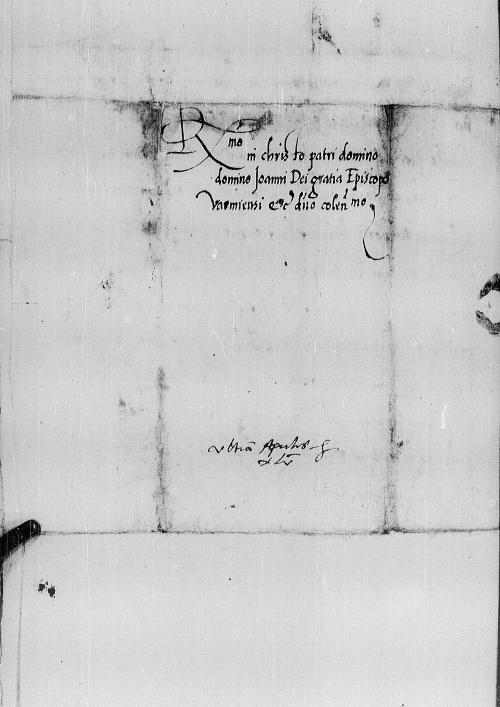 R mo
in christo patri domino
domino Joanni Dei gratia Episcopo
Varmiensi &c dn̄o colen mo